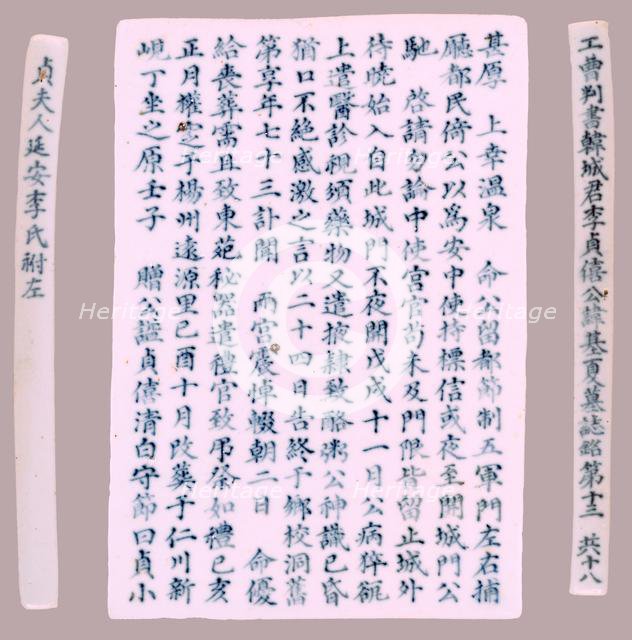 工曹判書韓城君李貞僖公諱基夏墓誌銘 第十三 共十八
甚厚 上幸溫泉 命公留都節制五軍門左右捕
廳都民倚公以爲安中使持標信或夜至開城門公
馳 啓請勿論中使宮官苟未及門限皆留止城外
待曉始入自此城門不夜開戊戌十一月公病猝𠫷
上遣醫診視須藥物又遣掖隷致酪粥公神識已昏
猶口不絶感激之言以二十四日告終于鄉校洞舊
第享年七十三訃聞 兩宮震悼輟朝二日 命優
給喪葬需且致東苑秘器遣禮官致吊祭如禮己亥
正月權窆于楊州遠源里己酉十月改葬于仁川新
峴丁坐之原壬子 贈公諡貞僖清白守節曰貞小
貞夫人延安李氏祔左
Heritage
Heritage
Heritage
Heritage
Heritage
Heritage
Heritage
Heritage
Heritage